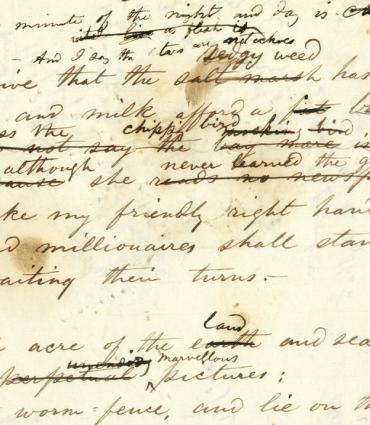 minute of the night and day is
with as flesh is
- And I say the stars are not echoes
sedgy weed
ive that the salt marsh has
and milk afford a
ss the chippy bird mocking bird
not say the bay mare is
although never learned the g
ause she reads no newsp
ke my friendly right hand
d millionaires shall stan
aiting their turns.—
land
acre of the earth and sea
unending marvellous
perpetual pictures;
worm-fence, and lie on th